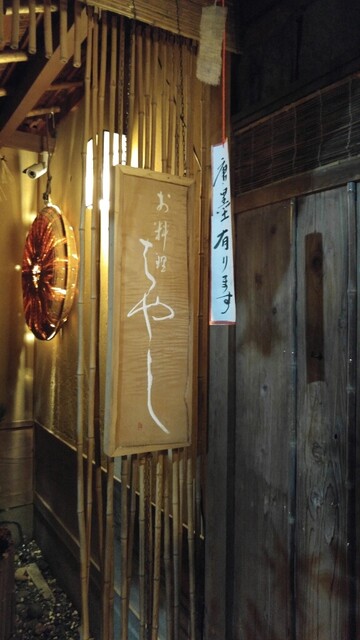 お料理
はやし
唐墨有ります